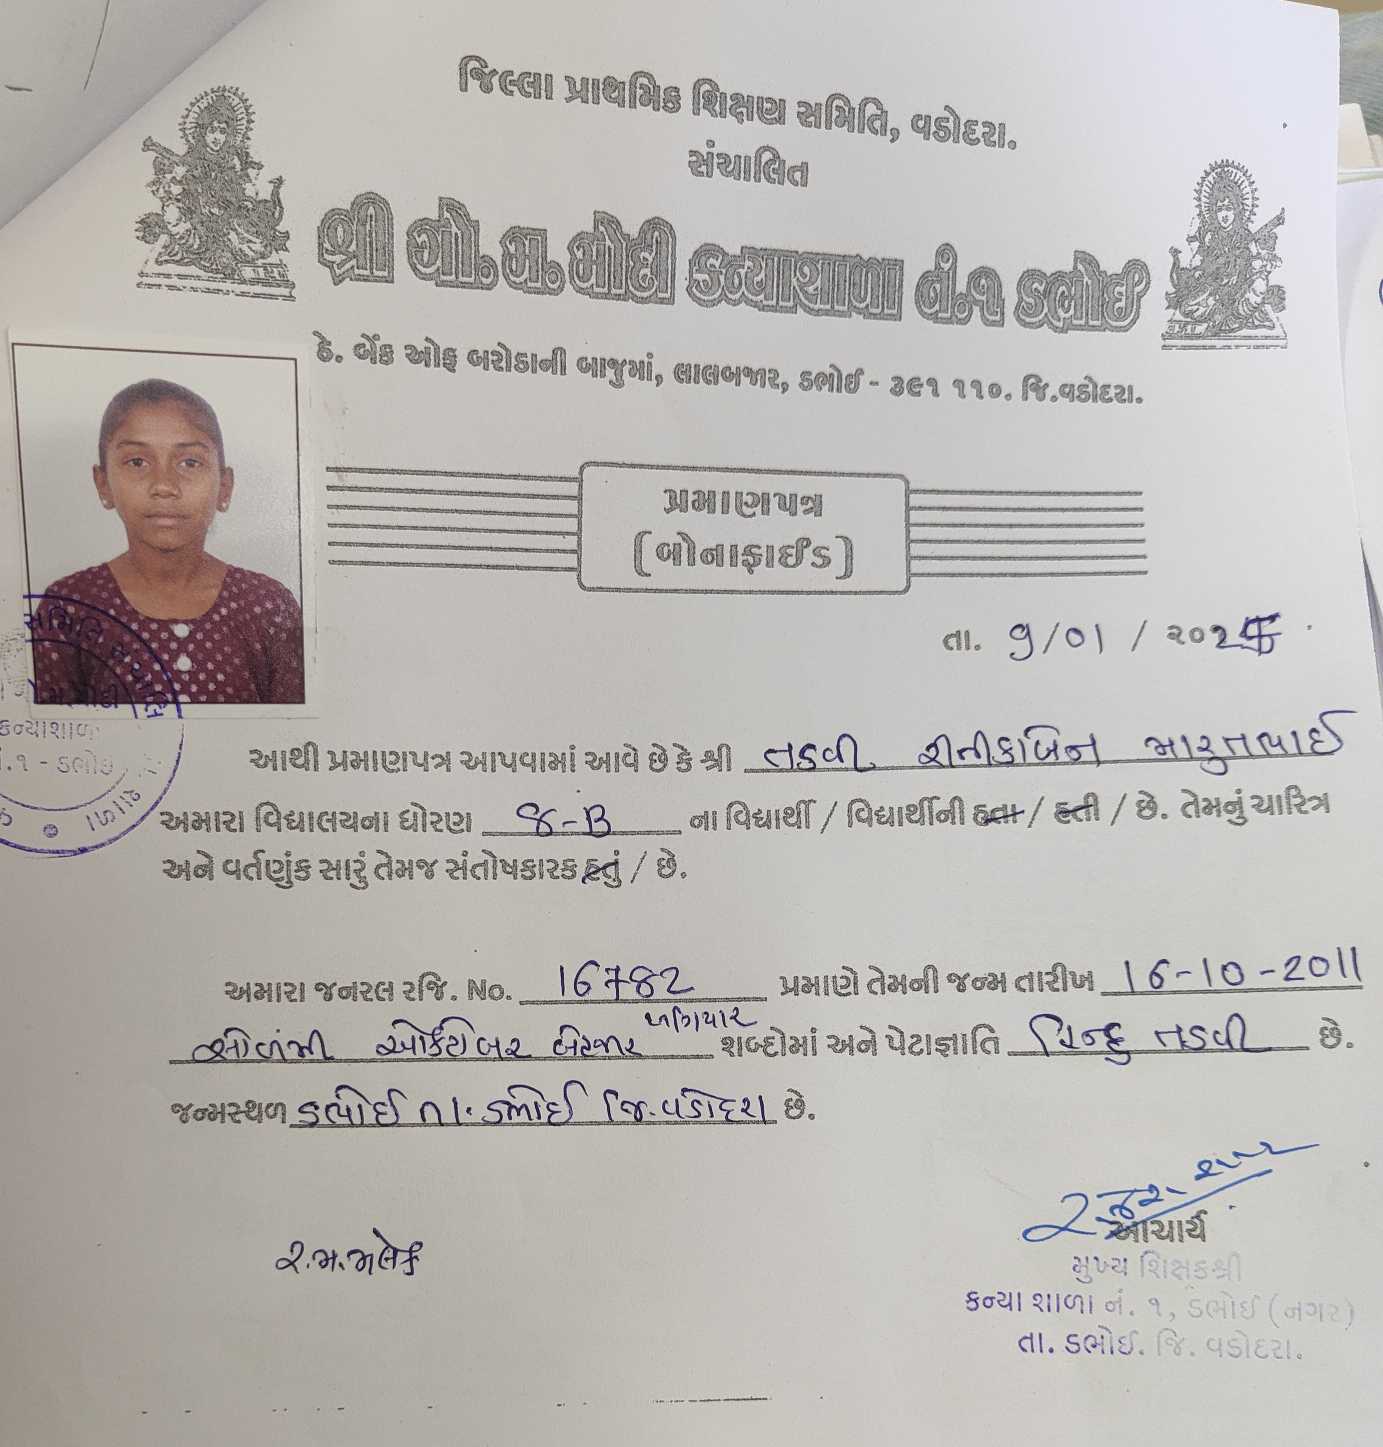 જિલ્લા પ્રાથમિક શિક્ષણ સમિતિ, વડોદરા.
સંચાલિત
શ્રી ગો.મ.મોદી કન્યાશાળા નં.૧ ડભોઈ
ઠે. બેંક ઓફ બરોડાની બાજુમાં, લાલબજાર, ડભોઈ - ૩૯૧ ૧૧૦. જિ.વડોદરા.
પ્રમાણપત્ર
(બોનાફાઈડ)
તા. ૭/૦૧ / ૨૦૨
આથી પ્રમાણપત્ર આપવામાં આવે છે કે શ્રી તડવી રીતીકાબેન મારુતભાઈ
અમારા વિદ્યાલયના ધોરણ ૪-B ના વિદ્યાર્થી / વિદ્યાર્થીની હતા / હતી / છે. તેમનું ચારિત્ર
અને વર્તણુંક સારું તેમજ સંતોષકારક હતું / છે.
અમારા જનરલ રજિ. No. 16782 પ્રમાણે તેમની જન્મ તારીખ 16-10-2011
સોળમી ઓક્ટોબર બેહજાર અગિયાર શબ્દોમાં અને પેટાજ્ઞાતિ હિન્દુ તડવી છે.
જન્મસ્થળ ડભોઈ તા. ડભોઈ જિ. વડોદરા છે.
ર.મ.મલેક
આચાર્ય
મુખ્ય શિક્ષકશ્રી
કન્યા શાળા નં. ૧, ડભોઈ (નગર)
તા. ડભોઈ. જિ. વડોદરા.
સમિતિ સંચાલિત
કન્યાશાળા
નં.૧ - ડભોઇ